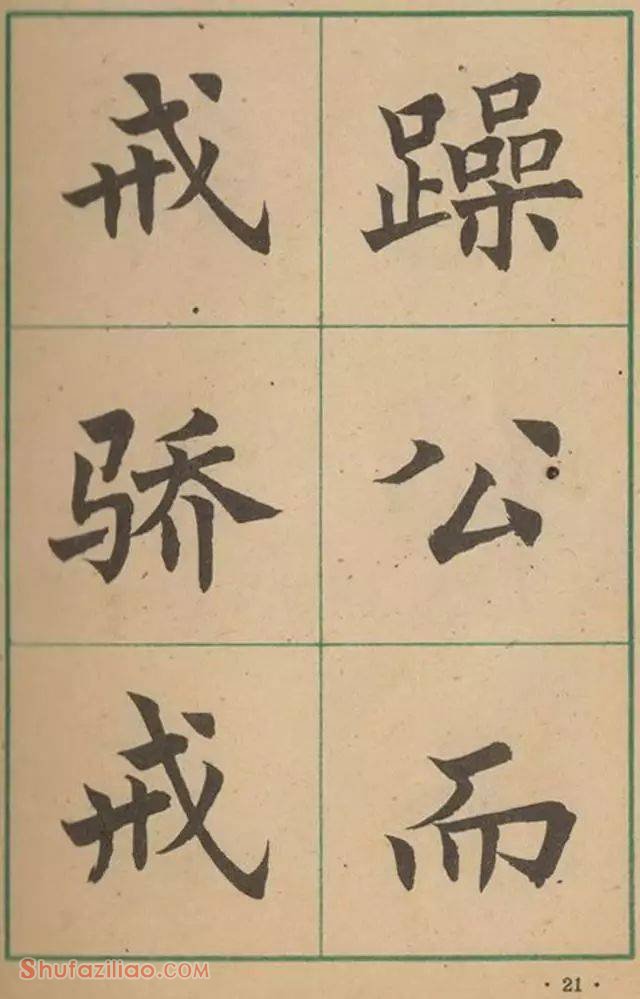 戒骄戒
躁公而
· 21 ·
Shufaziliao.com